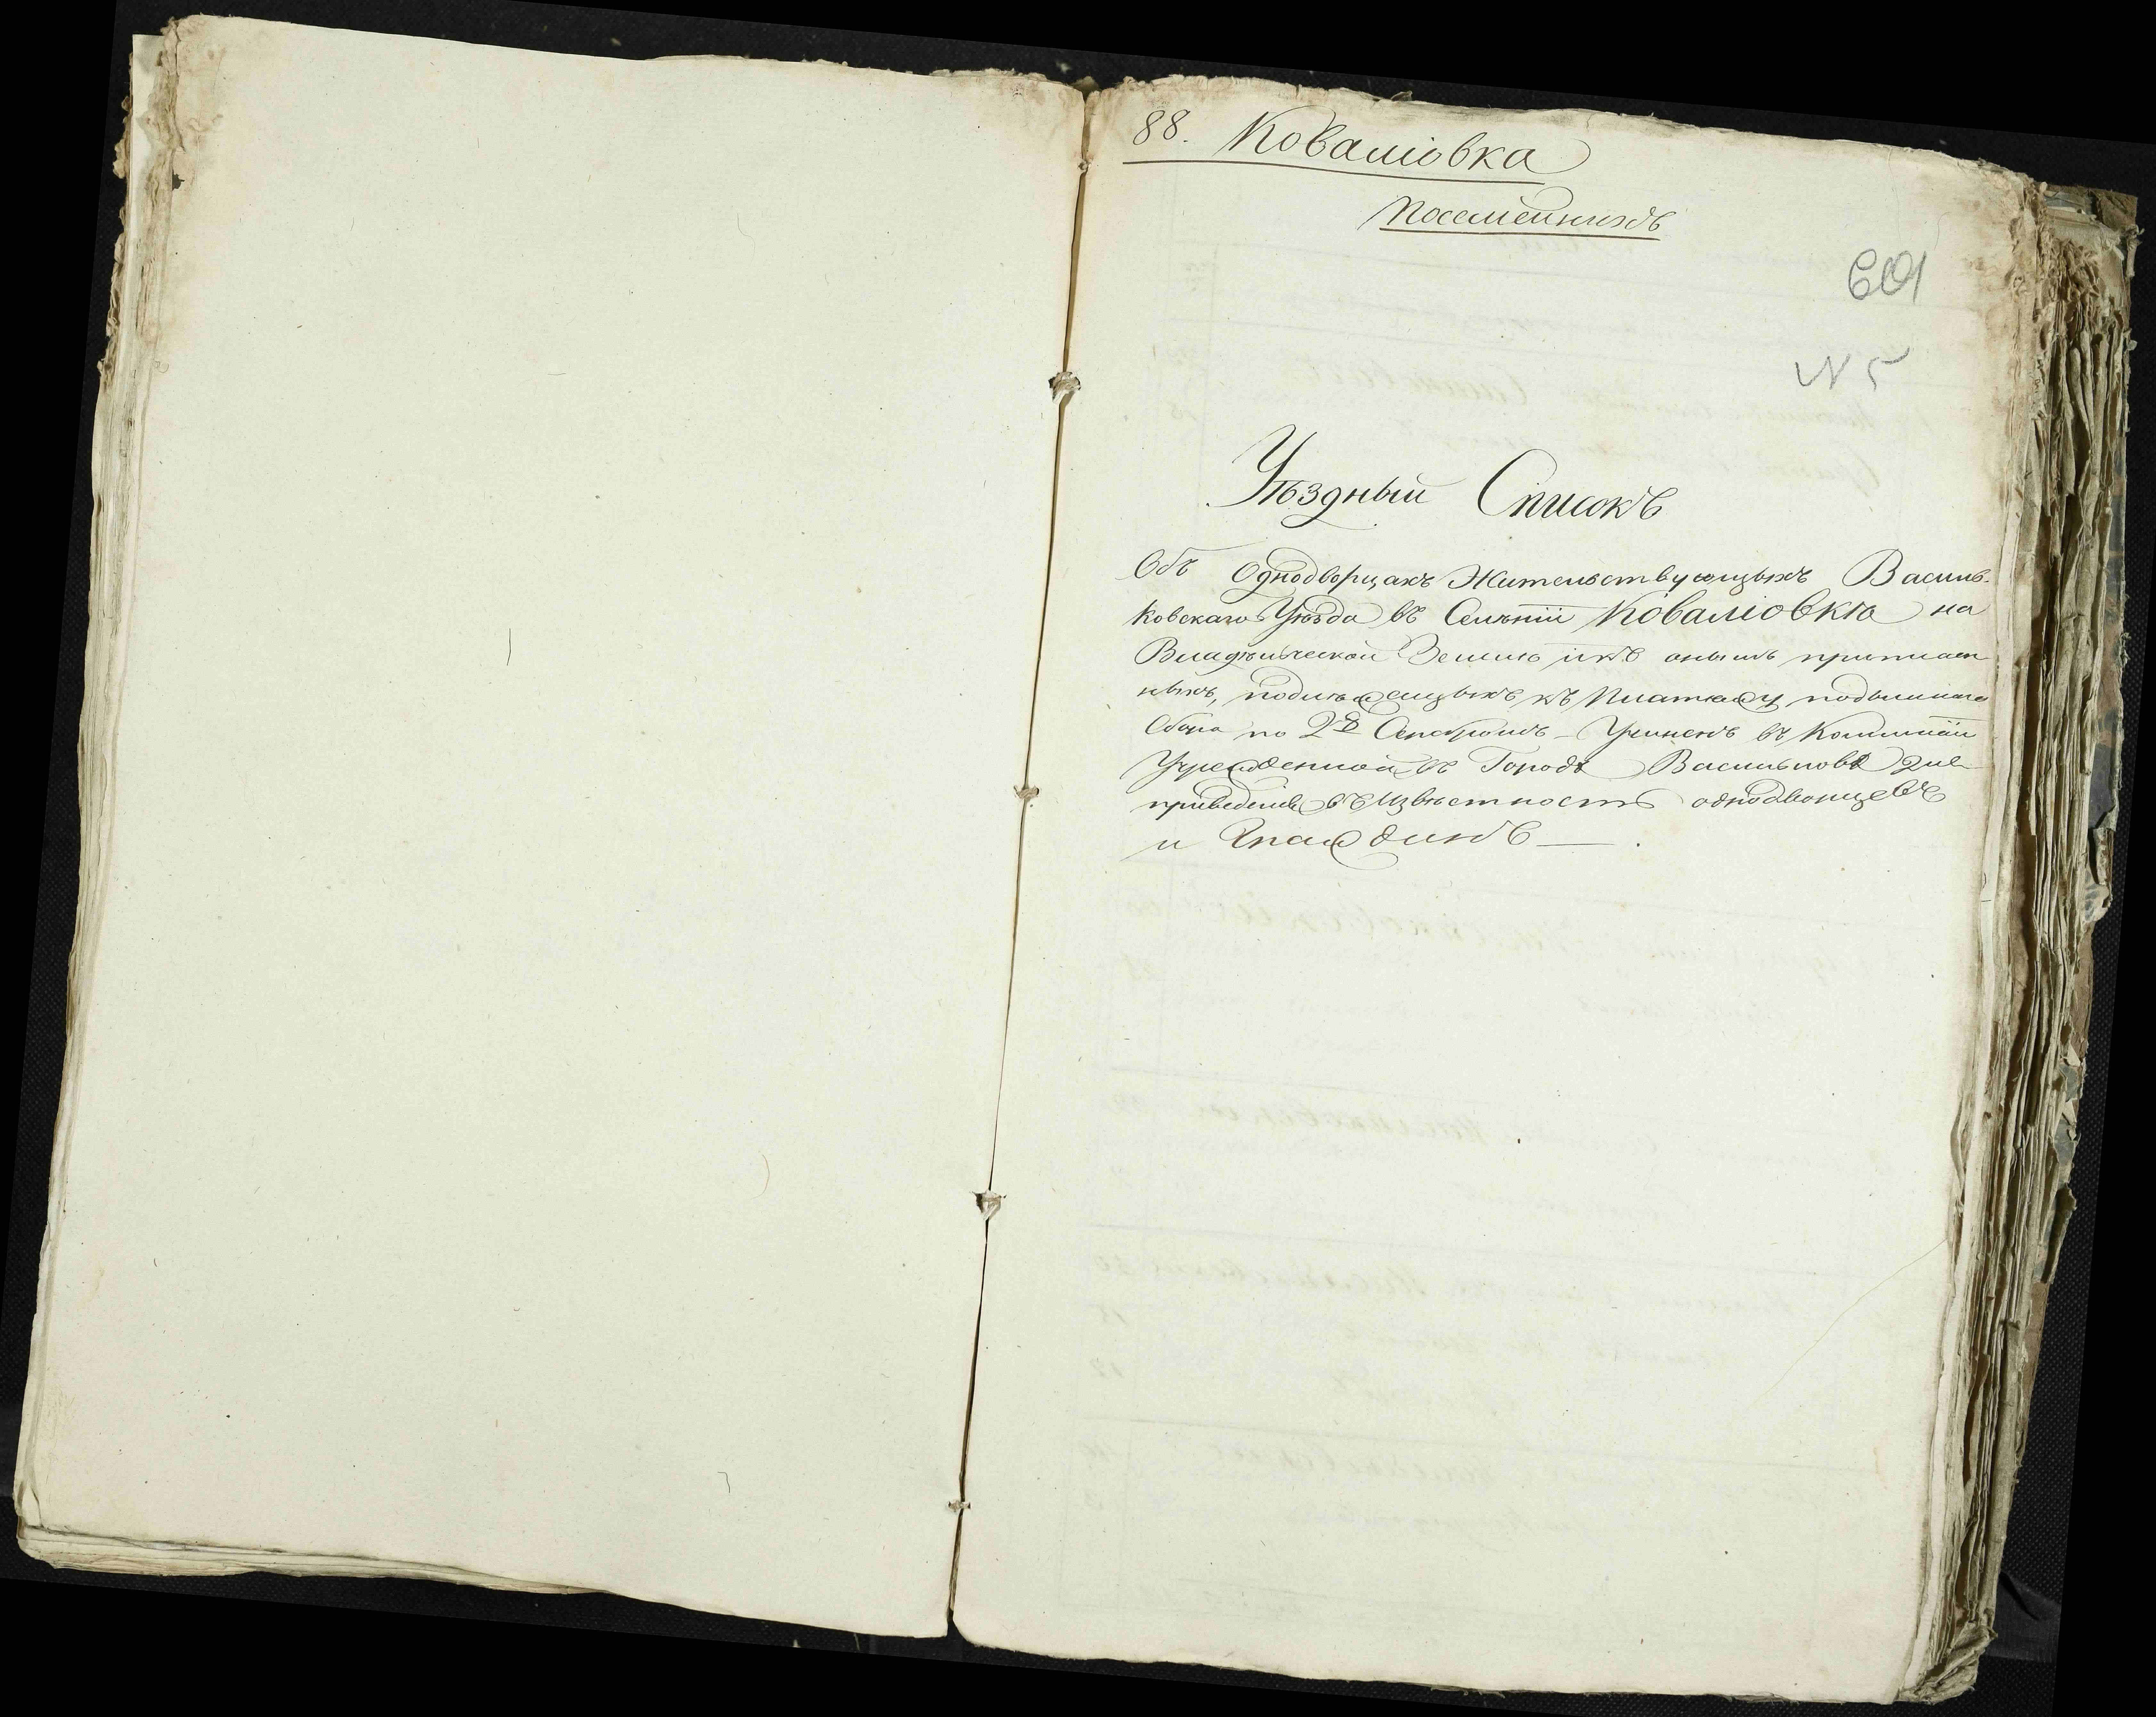 88. Коваліовка
Посемейныхъ
601
N 5
Уѣздный Списокъ
Объ Однодворцахъ Жительствующыхъ Василь-
ковскаго Уѣзда въ Селѣніи Коваліовкѣ на
Владѣльческой Землѣ и къ онымъ приписан
ныхъ, подлежащыхъ къ Платежу подымнаго
Сбора по 2й
Учрежденной въ Городѣ Васильковѣ для
приведенія въ Извѣстность однодворцевъ
и Гражданъ — .